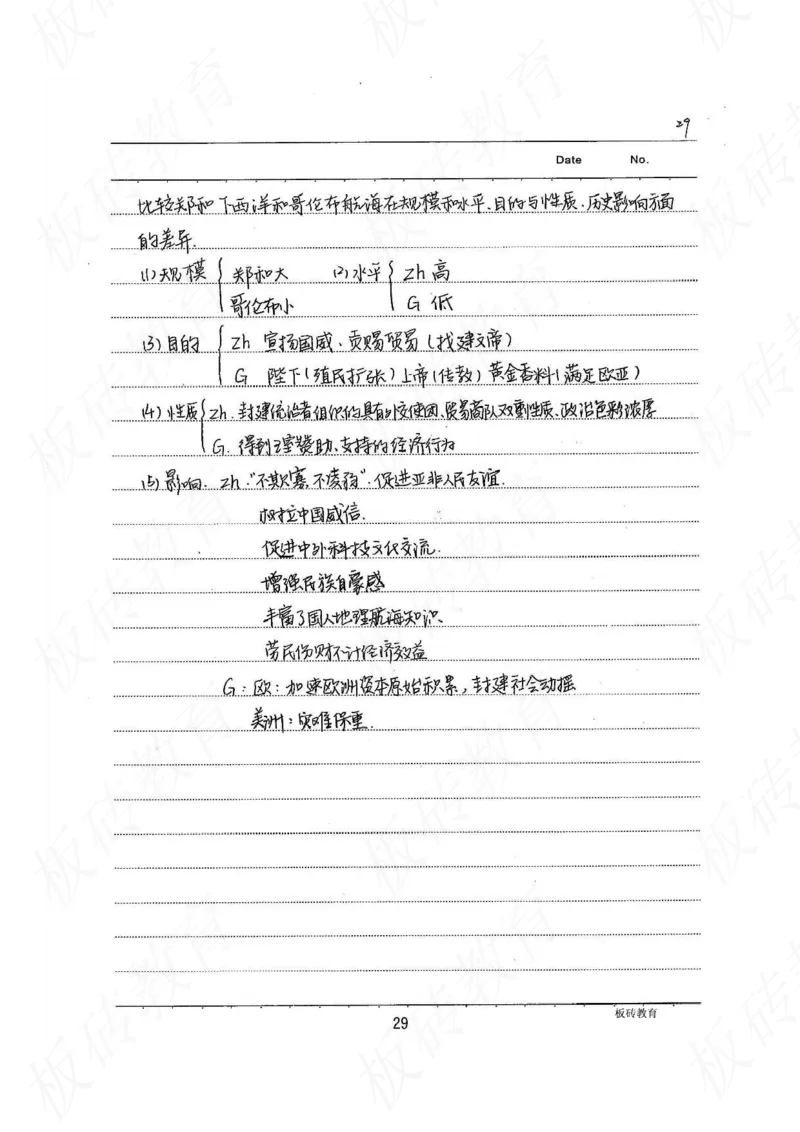 29
Date No.
比较郑和下西洋和哥伦布航海在规模和水平、目的与性质、历史影响方面
的差异.
(1)规模 { 郑和大 (2)水平 { Zh 高
哥伦布小 G 低
(3)目的 { Zh 宣扬国威、贡赐贸易(找建文帝)
G 陛下(殖民扩张)上帝(传教)黄金香料(满足欧亚)
(4)性质 { Zh. 封建统治者组织的具有外交使团、贸易商队双重性质、政治色彩浓厚
G. 得到王室赞助、支持的经济行为
(5)影响. Zh."不欺寡,不凌弱".促进亚非人民友谊.
树立中国威信.
促进中外科技文化交流.
增强民族自豪感
丰富了国人地理航海知识、
劳民伤财不计经济效益
G:欧:加速欧洲资本原始积累,封建社会动摇
美洲:灾难深重.
29
板砖教育